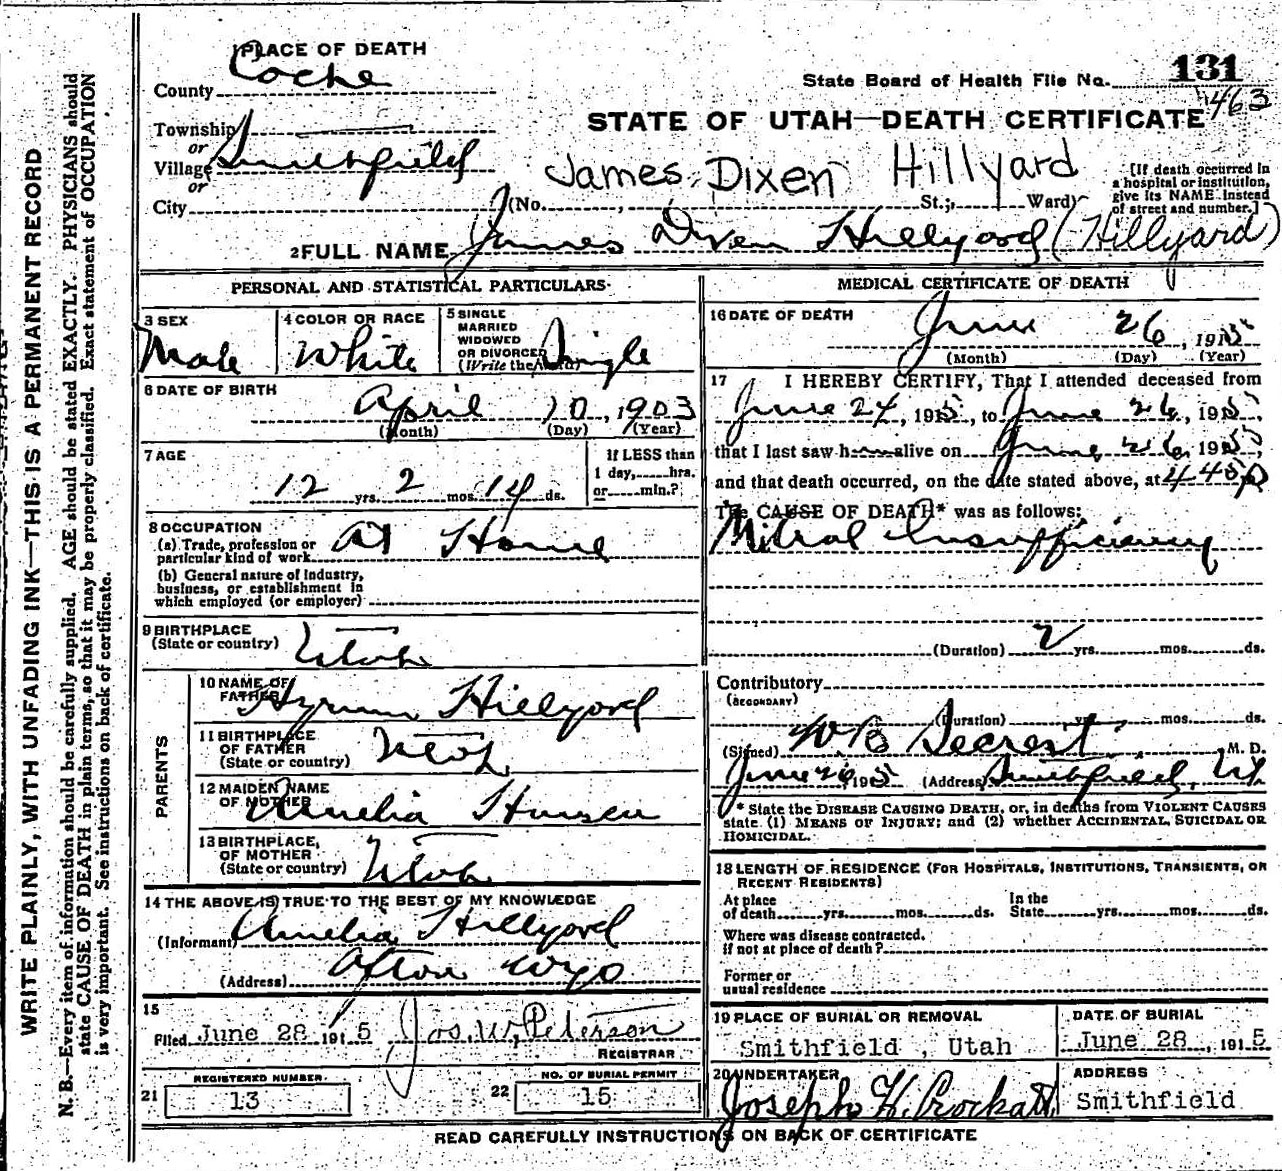 WRITE PLAINLY, WITH UNFADING INK—THIS IS A PERMANENT RECORD
N. B.—Every item of information should be carefully supplied. AGE should be stated EXACTLY. PHYSICIANS should
state CAUSE OF DEATH in plain terms, so that it may be properly classified. Exact statement of OCCUPATION
is very important. See instructions on back of certificate.
1 PLACE OF DEATH
County Cache
State Board of Health File No. 131
463
STATE OF UTAH—DEATH CERTIFICATE
Township
or
Village Smithfield
or
City
James Dixen Hillyard
(No. , St.; Ward)
[If death occurred in
a hospital or institution,
give its NAME instead
of street and number.]
2 FULL NAME James Dixen Hillyard (Hillyard)
PERSONAL AND STATISTICAL PARTICULARS
3 SEX
Male
4 COLOR OR RACE
White
5 SINGLE
MARRIED
WIDOWED
OR DIVORCED
(Write the word)
Single
6 DATE OF BIRTH
April 10, 1903
(Month) (Day) (Year)
7 AGE
12 yrs. 2 mos. 14 ds.
If LESS than
1 day, hrs.
or min.?
8 OCCUPATION
(a) Trade, profession or
particular kind of work At Home
(b) General nature of industry,
business, or establishment in
which employed (or employer)
9 BIRTHPLACE
(State or country) Utah
PARENTS
10 NAME OF
FATHER Hyrum Hillyard
11 BIRTHPLACE
OF FATHER
(State or country) Utah
12 MAIDEN NAME
OF MOTHER Amelia Hansen
13 BIRTHPLACE
OF MOTHER
(State or country) Utah
14 THE ABOVE IS TRUE TO THE BEST OF MY KNOWLEDGE
(Informant) Amelia Hillyard
(Address) Afton Wyo
15
Filed June 28 1915 Jos. W. Peterson
REGISTRAR
21 REGISTERED NUMBER
13
22 NO. OF BURIAL PERMIT
15
MEDICAL CERTIFICATE OF DEATH
16 DATE OF DEATH
June 26, 1915
(Month) (Day) (Year)
17 I HEREBY CERTIFY, That I attended deceased from
June 24, 1915, to June 26, 1915,
that I last saw h alive on June 26, 1915
and that death occurred, on the date stated above, at 4 45 p
The CAUSE OF DEATH* was as follows:
Mitral Insufficiency
(Duration) 2 yrs. mos. ds.
Contributory
(SECONDARY)
(Duration) yrs. mos. ds.
(Signed) W B Secrest, M. D.
June 26, 1915 (Address) Smithfield, Ut
* State the DISEASE CAUSING DEATH, or, in deaths from VIOLENT CAUSES
state (1) MEANS OF INJURY; and (2) whether ACCIDENTAL, SUICIDAL OR
HOMICIDAL.
18 LENGTH OF RESIDENCE (FOR HOSPITALS, INSTITUTIONS, TRANSIENTS, OR
RECENT RESIDENTS)
At place
of death yrs. mos. ds.
In the
State yrs. mos. ds.
Where was disease contracted,
if not at place of death?
Former or
usual residence
19 PLACE OF BURIAL OR REMOVAL
Smithfield, Utah
DATE OF BURIAL
June 28, 1915
20 UNDERTAKER
Joseph H. Crockatt
ADDRESS
Smithfield
READ CAREFULLY INSTRUCTIONS ON BACK OF CERTIFICATE